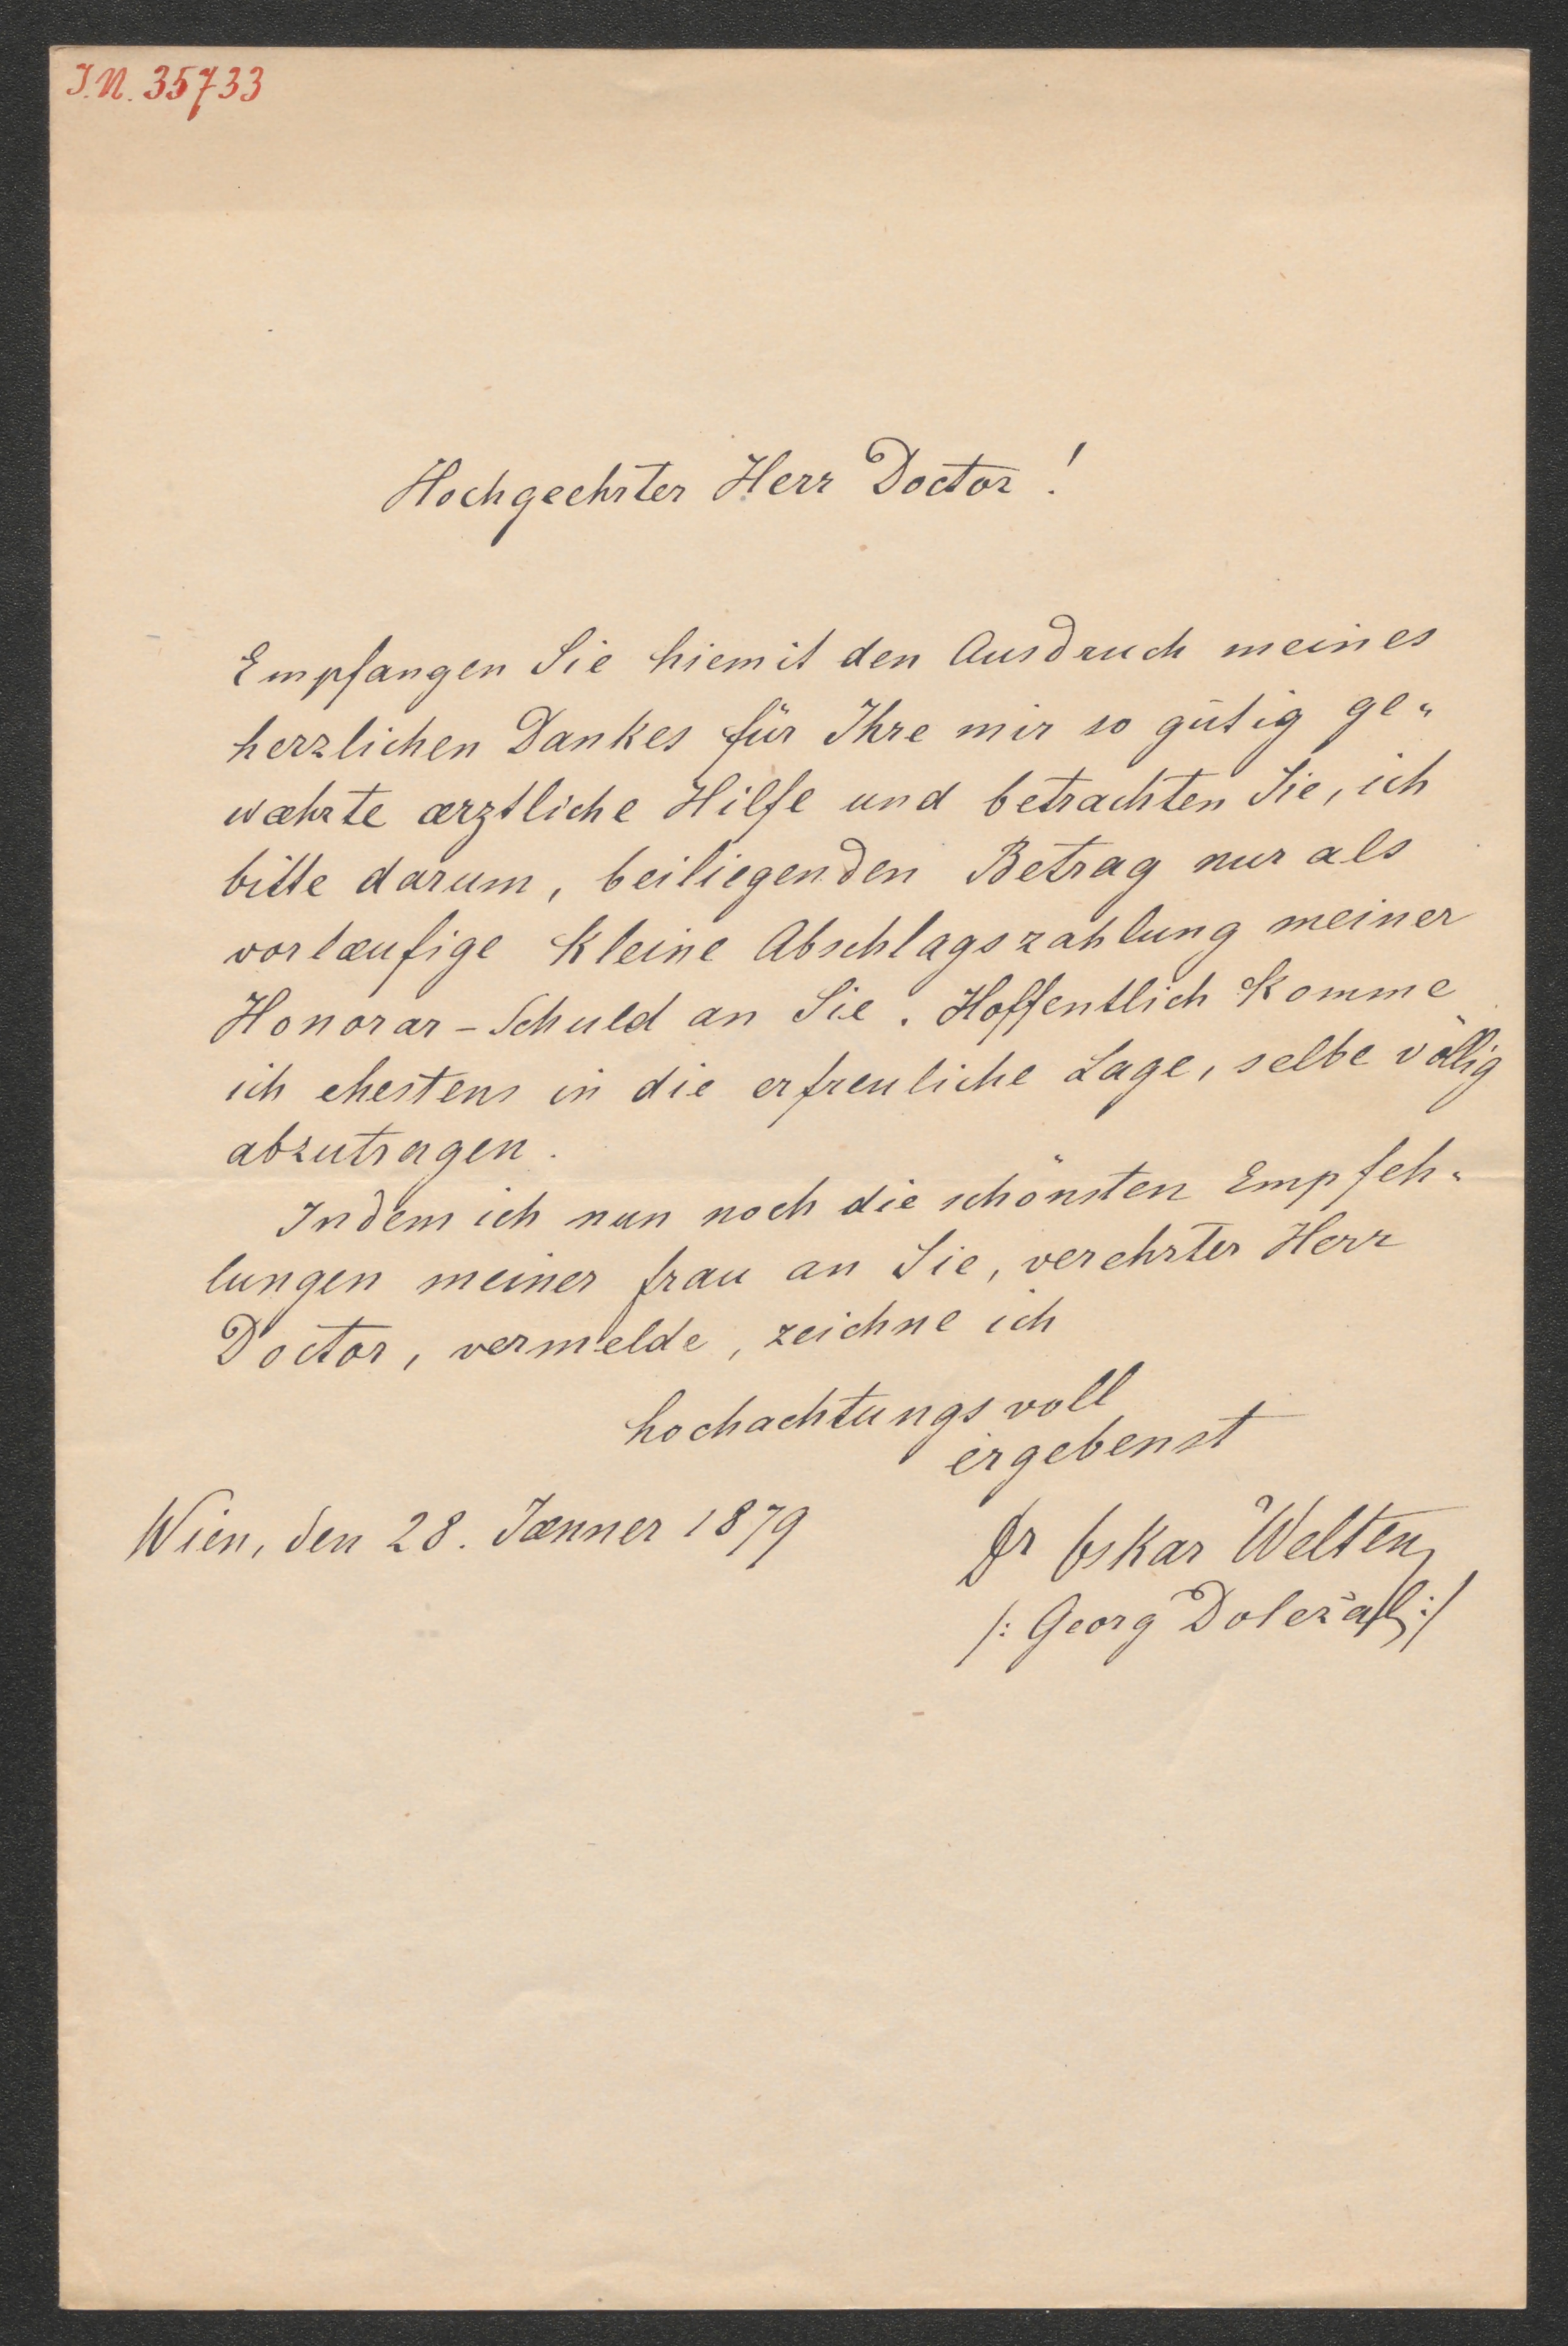 J.N. 35733
Hochgeehrter Herr Doctor!
Empfangen Sie hiemit den Ausdruck meines
herzlichen Dankes für Ihre mir so gütig ge-
wæhrte ærztliche Hilfe und betrachten Sie, ich
bitte darum, beiliegenden Betrag nur als
vorlæufige kleine Abschlagszahlung meiner
Honorar-Schuld an Sie. Hoffentlich komme
ich ehestens in die erfreuliche Lage, selbe völlig
abzutragen.
Indem ich nun noch die schönsten Empfeh-
lungen meiner Frau an Sie, verehrter Herr
Doctor, vermelde, zeichne ich
hochachtungsvoll
ergebenst
Wien, den 28. Jænner 1879
Dr Oskar Welten
/: Georg Doležal :/